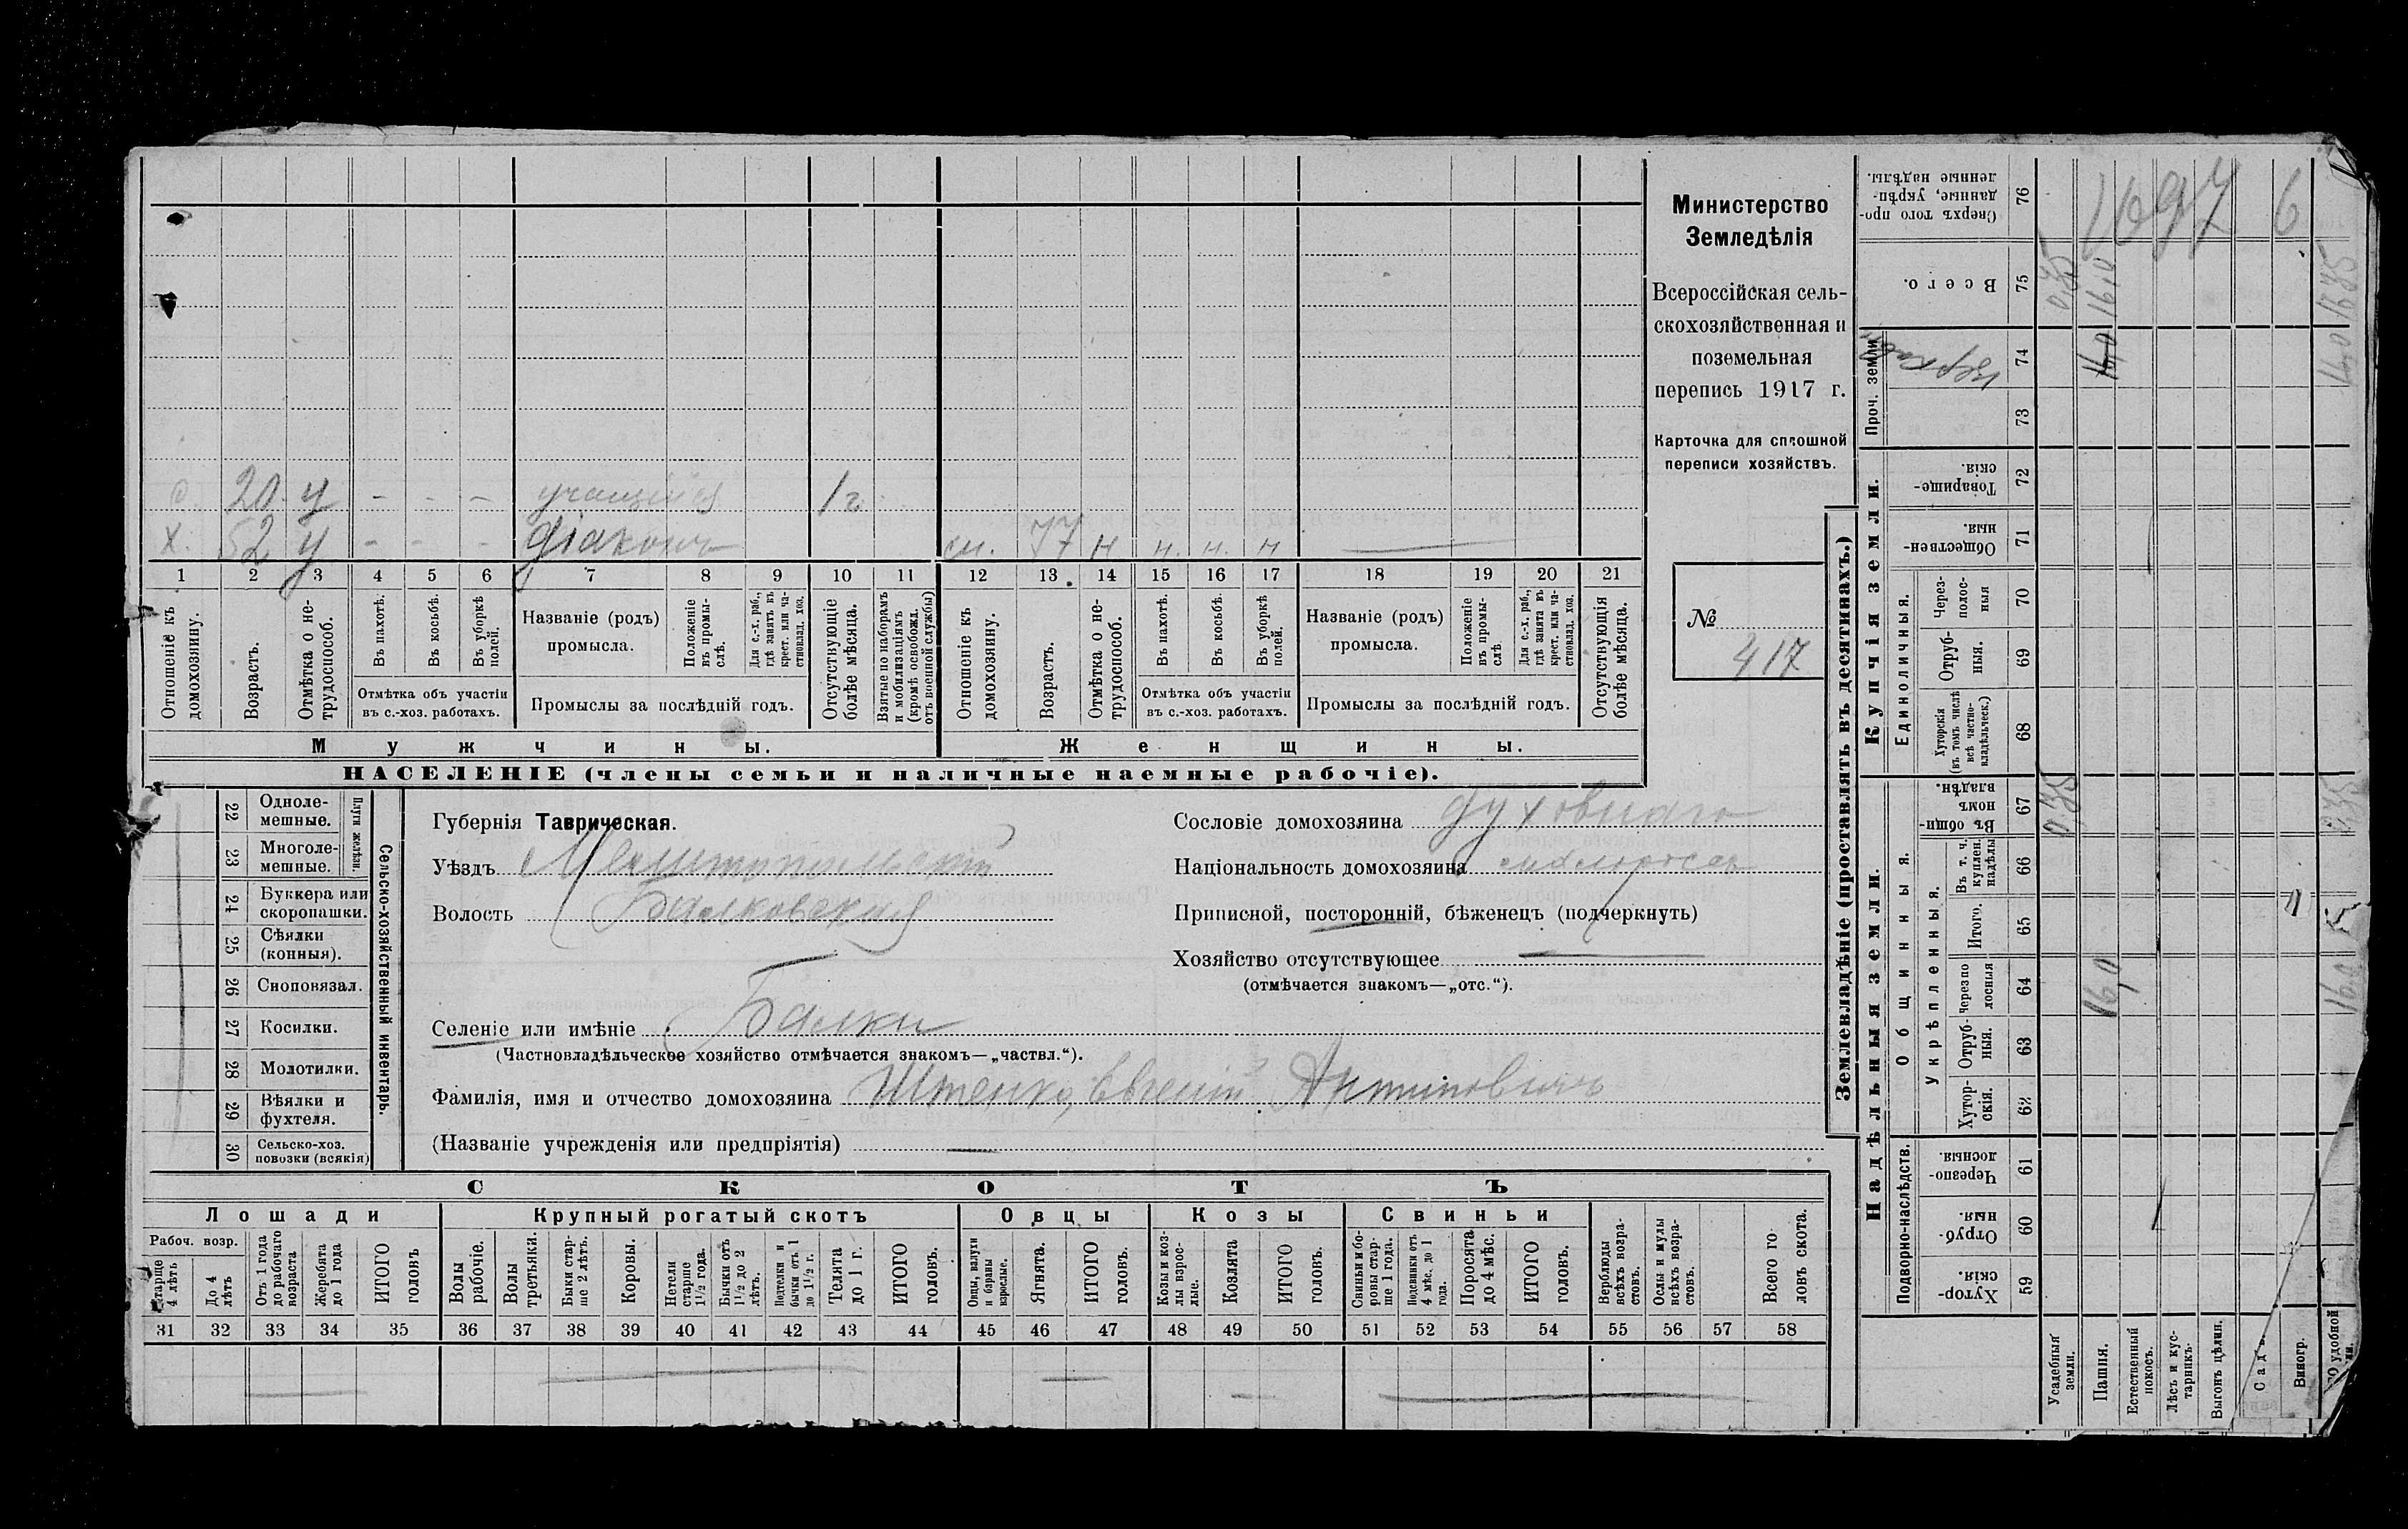 с. 20 у - - - учащійся 1 г.
х. 52 у - - - діаконъ м. 77 н н. н. н
1 2 3 4 5 6 7 8 9 10 11 12 13 14 15 16 17 18 19 20 21
Отношеніе къ домохозяину.
Возрастъ.
Отмѣтка о не-
трудоспособ.
Въ пахотѣ.
Въ косьбѣ.
Въ уборкѣ полей.
Отмѣтка объ участіи
въ с.-хоз. работахъ.
Названіе (родъ)
промысла.
Положеніе въ промы-
слѣ.
Для с.-х. раб.,
гдѣ занятъ въ
крест. или ча-
стновлад. хоз.
Промыслы за послѣдній годъ.
Отсутствующіе болѣе мѣсяца.
Взятые по наборамъ
и мобилизаціямъ
(кромѣ освобожд.
отъ военной службы)
Отношеніе къ домохозяину.
Возрастъ.
Отмѣтка о не-
трудоспособ.
Въ пахотѣ.
Въ косьбѣ.
Въ уборкѣ полей.
Отмѣтка объ участіи
въ с.-хоз. работахъ.
Названіе (родъ)
промысла.
Положеніе въ промы-
слѣ
Для с.-х. раб.,
гдѣ занята въ
крест. или ча-
стновлад. хоз.
Промыслы за послѣдній годъ.
Отсутствующія болѣе мѣсяца.
Мужчины.
Женщины.
НАСЕЛЕНІЕ (члены семьи и наличные наемные рабочіе).
Министерство
Земледѣлія
Всероссійская сель-
скохозяйственная и
поземельная
перепись 1917 г.
Карточка для сплошной
переписи хозяйствъ.
№
417
22 Одноле-
мешные.
23 Многоле-
мешные.
Плуги желѣзн.
24 Буккера или
скоропашки.
25 Сѣялки
(конныя).
26 Сноповязал.
27 Косилки.
28 Молотилки.
29 Вѣялки и
фухтеля.
30 Сельско-хоз.
повозки (всякія)
Сельско-хозяйственный инвентарь.
Губернія Таврическая.
Уѣздъ Мелитопольскій
Волость Балковская
Селеніе или имѣніе Балки
(Частновладѣльческое хозяйство отмѣчается знакомъ—„частвл.“).
Фамилія, имя и отчество домохозяина Иштенко, Евгеній Антиповичъ
(Названіе учрежденія или предпріятія)
Сословіе домохозяина духовнаго
Національность домохозяина малороссъ
Приписной, посторонній, бѣженецъ (подчеркнуть)
Хозяйство отсутствующее
(отмѣчается знакомъ—„отс.“).
СКОТЪ
Лошади
Крупный рогатый скотъ
Овцы
Козы
Свиньи
Рабоч. возр.
Старше 4 лѣтъ
До 4 лѣтъ
Отъ 1 года
до рабочаго
возраста
Жеребята до 1 года
ИТОГО головъ
Волы рабочіе.
Волы третьяки.
Быки стар-
ше 2 лѣтъ.
Коровы.
Нетели старше 1½ года.
Бычки отъ 1½ до 2 лѣтъ.
Подтелки и бычки отъ 1 до 1½ г.
Телята до 1 г.
ИТОГО головъ.
Овцы, валухи и бараны взрослые.
Ягнята.
ИТОГО головъ.
Козы и коз-
лы взрос-
лые.
Козлята
ИТОГО головъ.
Свиньи и бо-
ровы стар-
ше 1 года.
Подсвинки отъ 4 мѣс. до 1 года.
Поросята до 4 мѣс.
ИТОГО головъ.
Верблюды всѣхъ возра-
стовъ.
Ослы и мулы всѣхъ возра-
стовъ.
Всего го-
ловъ скота.
31 32 33 34 35 36 37 38 39 40 41 42 43 44 45 46 47 48 49 50 51 52 53 54 55 56 57 58
Землевладѣніе (проставлять въ десятинахъ.)
Надѣльныя земли.
Купчія земли.
Проч. земли
Подворно-наслѣдств.
Общинныя.
Укрѣпленныя.
Единоличныя.
Хутор-
скія. 59
Отруб-
ныя. 60
Черезпо-
лосныя. 61
Хутор-
скія. 62
Отруб-
ныя. 63
Черезпо-
лосныя 64
Итого. 65
Въ т. ч. куплен. надѣлы 66
Въ общин-
номъ владѣн. 67
Хуторскія
(въ томъ числѣ
всѣ частно-
владѣльческ.) 68
Отруб-
ныя. 69
Через-
полос-
ныя 70
Обществен-
ныя. 71
Товарище-
скія. 72
73
74
Всего. 75
Сверхъ того про-
данные, укрѣп-
ленные надѣлы. 76
Усадебныя земли. 0,75 0,75
Пашня. 16,0 16,0
Естественный покосъ.
Лѣсъ и кус-
тарникъ.
Выгонъ цѣлин.
Садъ.
Виногр.
1697 6